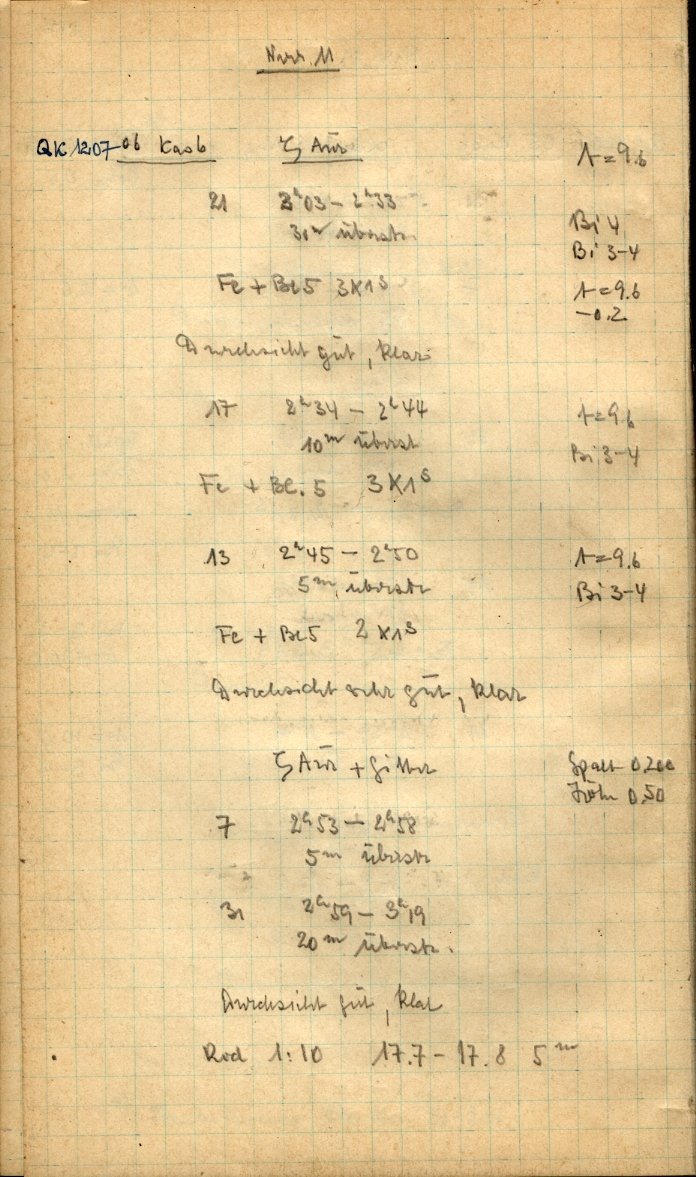 Nov. 11
QK 1207-06 Kas 6 ζ Aur t = 9.6
21 2ʰ03 – 2ʰ33 Bi 4
30ᵐ überstr. Bi 3-4
Fe + Be 5 3x1ˢ t = 9.6
-0.2
Durchsicht gut, klar
17 2ʰ34 – 2ʰ44 t = 9.6
10ᵐ überst Bi 3-4
Fe + Be. 5 3x1ˢ
13 2ʰ45 – 2ʰ50 t = 9.6
5ᵐ überstr Bi 3-4
Fe + Be 5 2x1ˢ
Durchsicht sehr gut, klar
ζ Aur + Gitter Spalt 0.200
Höhe 0.50
7 2ʰ53 – 2ʰ58
5ᵐ überstr
31 2ʰ59 – 3ʰ19
20ᵐ überstr.
Durchsicht gut, klar
1:10 17.7 – 17.8 5ᵐ